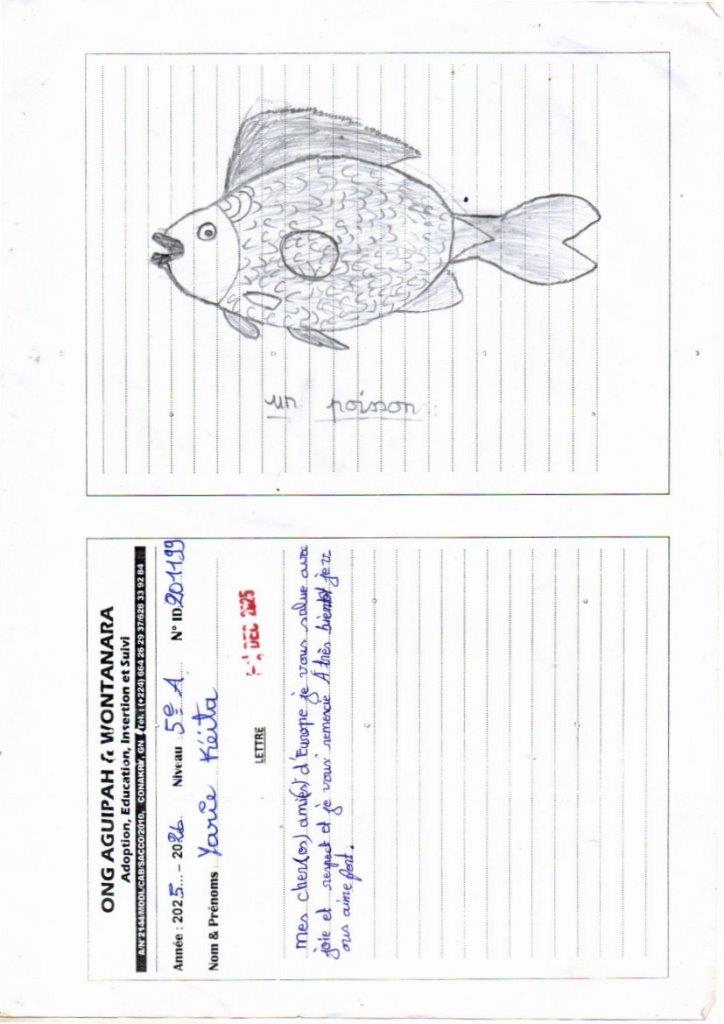 ONG AGUIPAH & WONTANARA
Adoption, Education, Insertion et Suivi
A/N°2144/MDDL/CAB/SACCO/2010, CONAKRY, GN Tél : (+224) 664 26 29 37/628 33 92 84
Année : 2025 - 2026 Niveau : 5e A N° ID 201199
Nom & Prénoms : Yarie Kéita
DEC 2025
LETTRE
Mes cher(es) ami(e)s d'Europe je vous salue avec
joie et respect et je vous remercie À très bientôt je v
ous aime fort.
un poisson